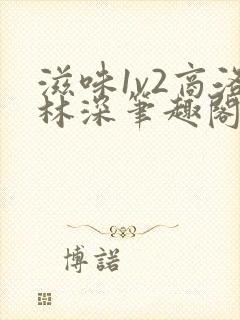 滋味1v2高洛
林深笔趣阁
博諾